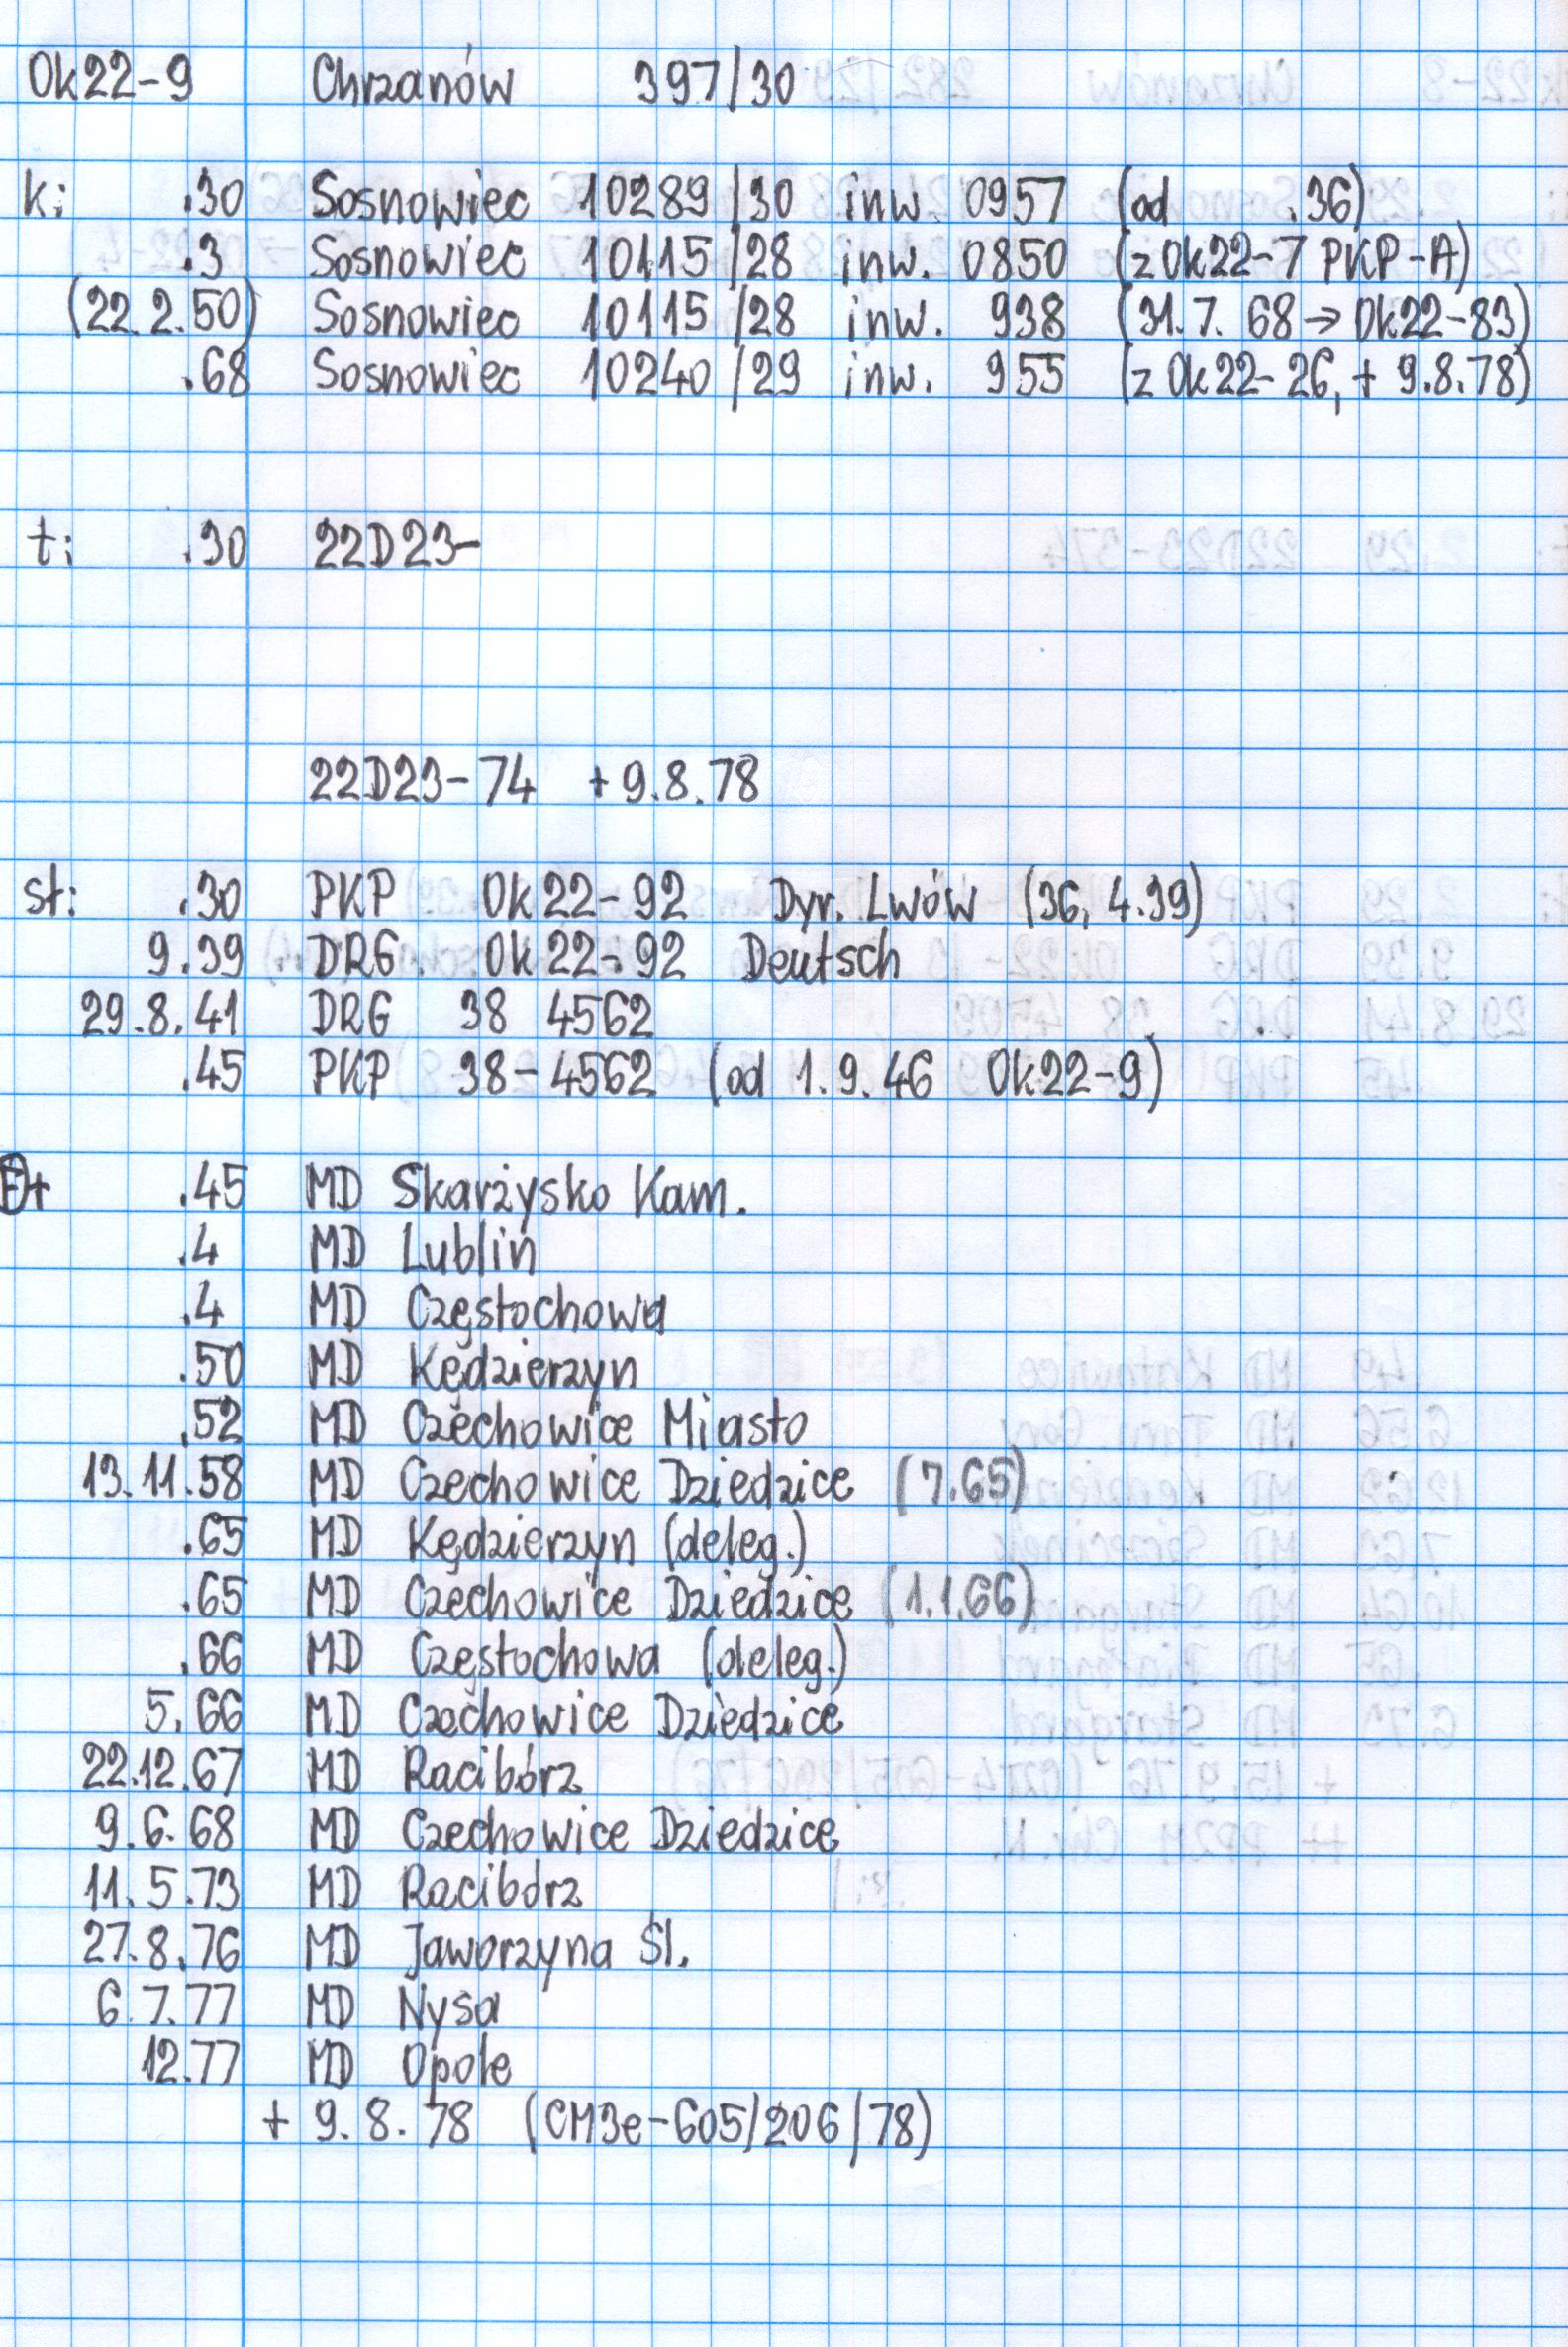 Ok22-9 Chrzanów 397/30
k: .30 Sosnowiec 10289/30 inw. 0957 (od .36)
.3 Sosnowiec 10115/28 inw. 0850 (z Ok22-7 PKP-A)
(22.2.50) Sosnowiec 10115/28 inw. 938 (31.7.68 → Ok22-83)
.68 Sosnowiec 10240/29 inw. 955 (z Ok22-26, + 9.8.78)
t: .30 22D23-
22D23-74 + 9.8.78
st: .30 PKP Ok22-92 Dyr. Lwów (36, 4.39)
9.39 DRG Ok22-92 Deutsch
29.8.41 DRG 38 4562
.45 PKP 38-4562 (od 1.9.46 Ok22-9)
E+ .45 MD Skarżysko Kam.
.4 MD Lublin
.4 MD Częstochowa
.50 MD Kędzierzyn
.52 MD Czechowice Miasto
13.11.58 MD Czechowice Dziedzice (7.65)
.65 MD Kędzierzyn (deleg.)
.65 MD Czechowice Dziedzice (1.1.66)
.66 MD Częstochowa (deleg.)
5.66 MD Czechowice Dziedzice
22.12.67 MD Racibórz
9.6.68 MD Czechowice Dziedzice
11.5.73 MD Racibórz
27.8.76 MD Jaworzyna Śl.
6.7.77 MD Nysa
12.77 MD Opole
+ 9.8.78 (CM3e-605/206/78)